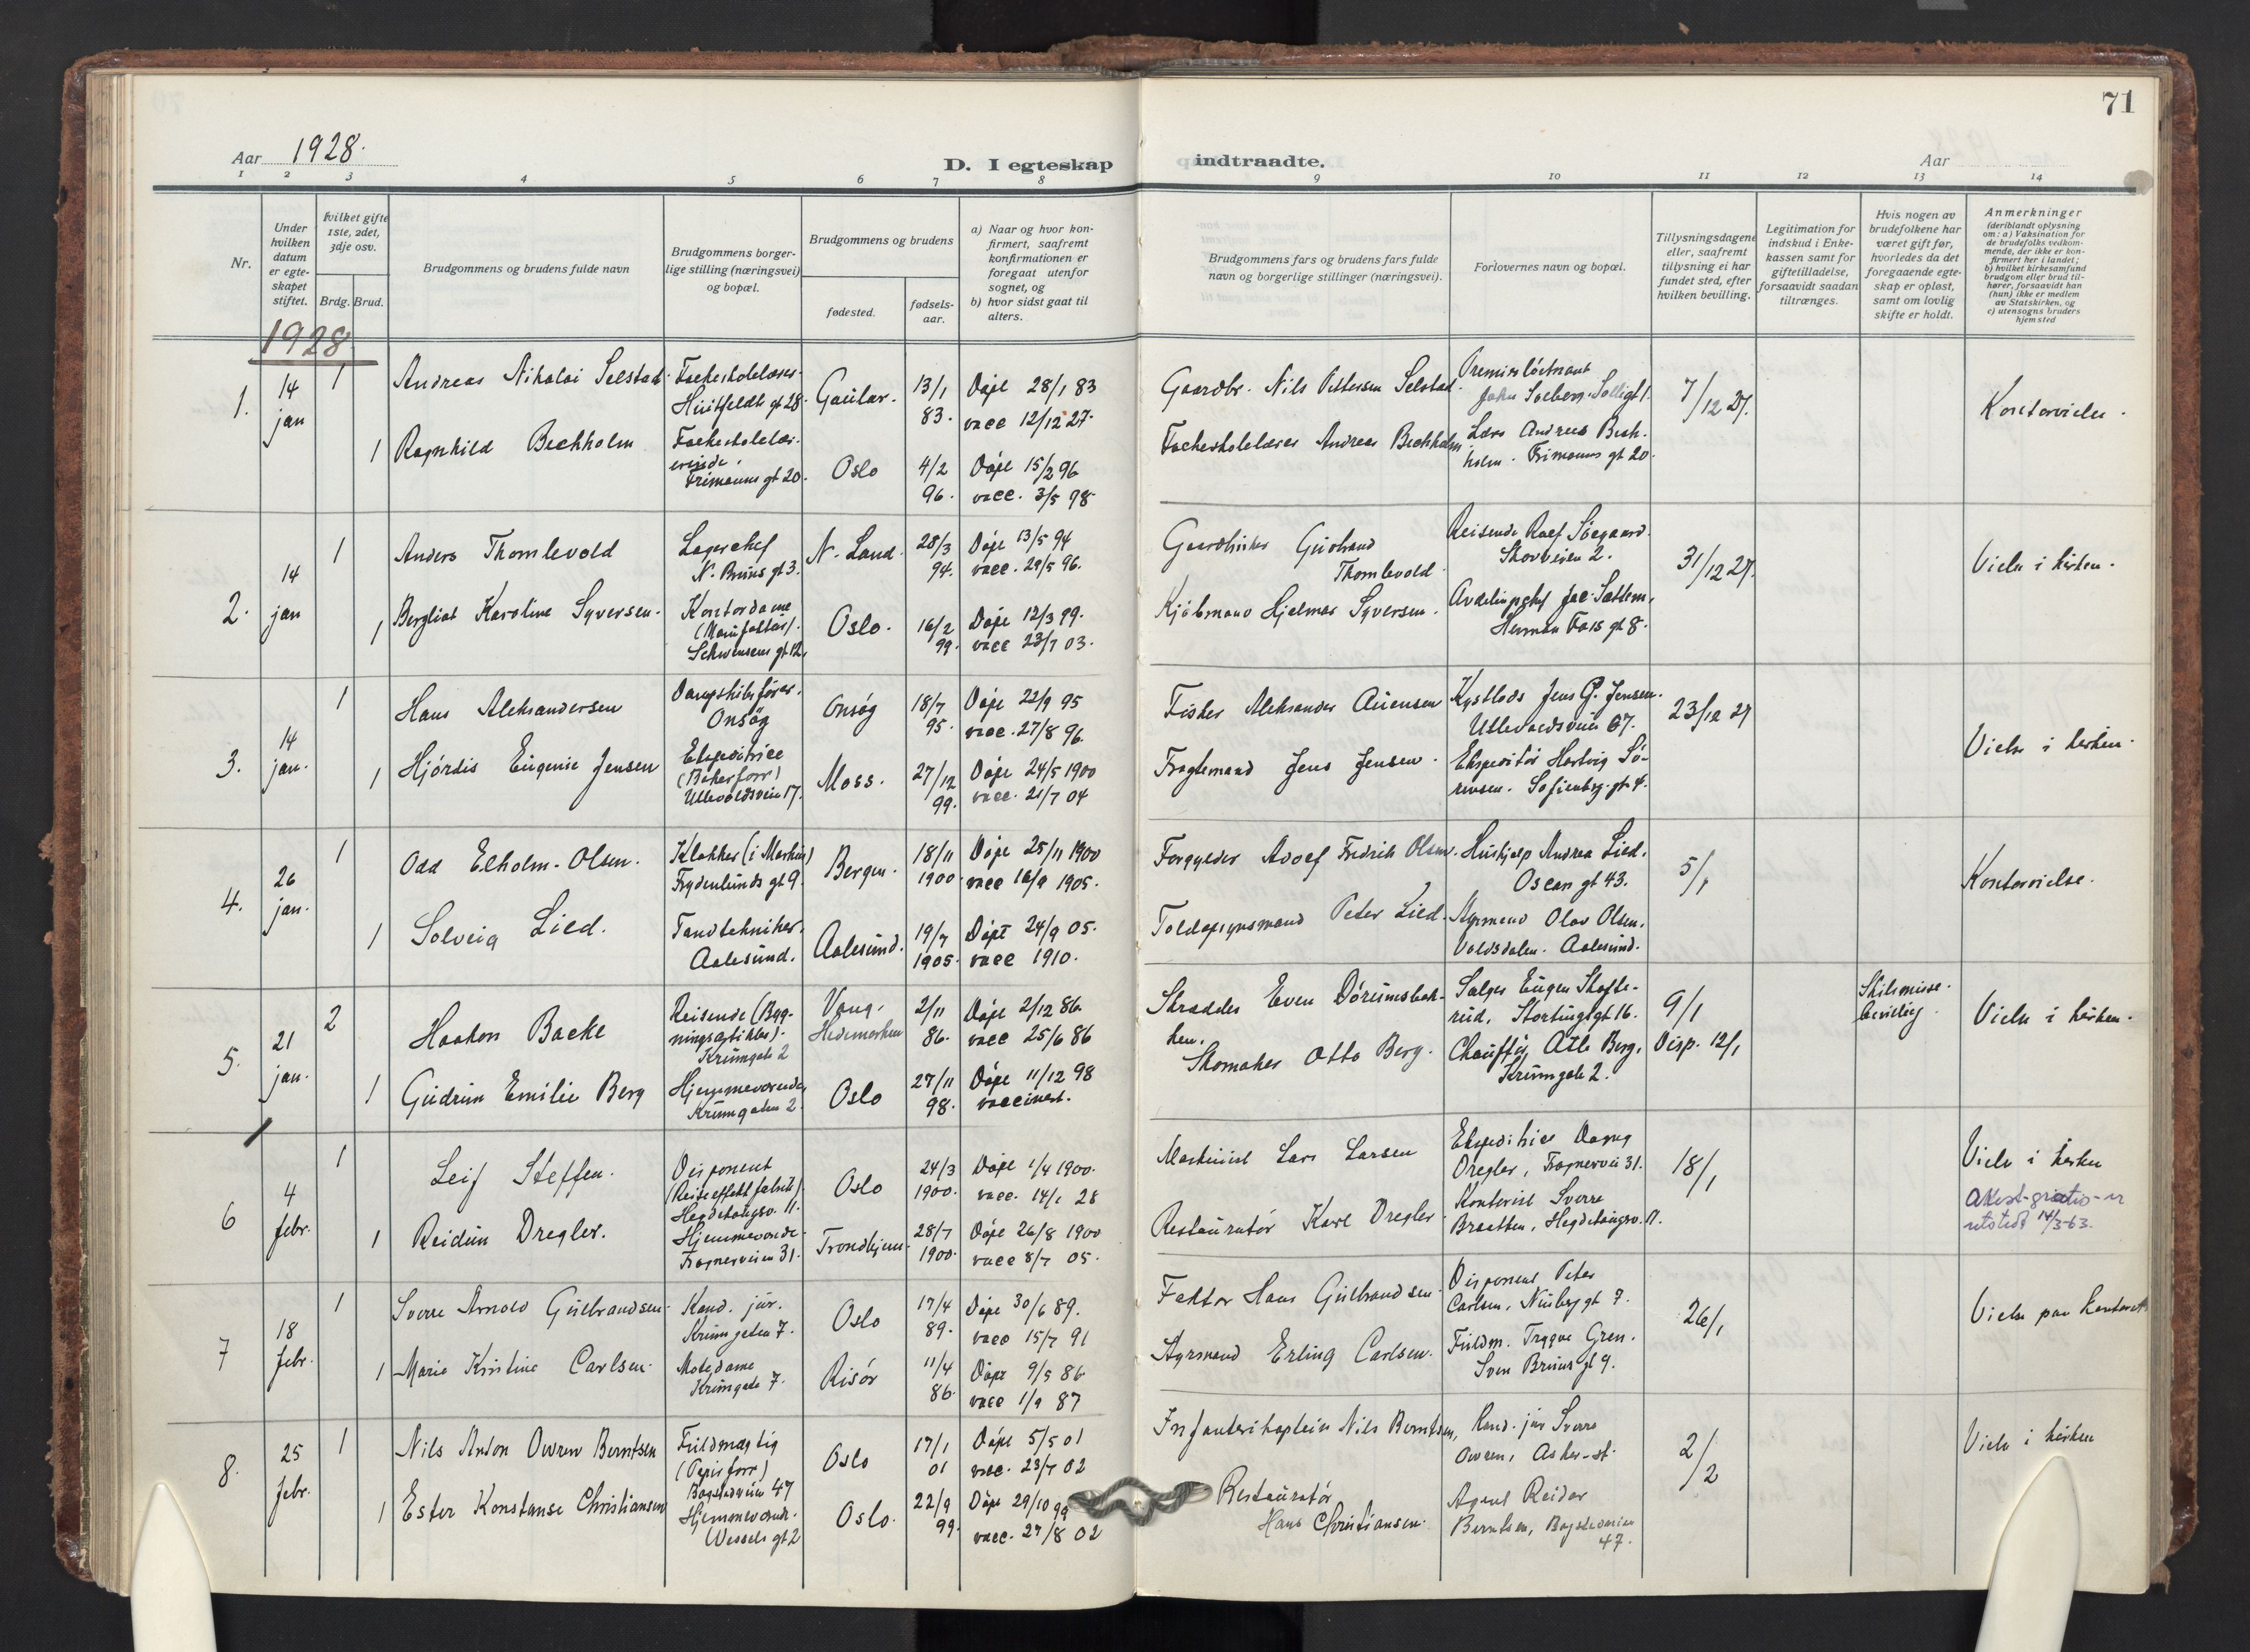 71
Aar 1928.
D. I egteskap indtraadte.
Aar
1 2 3 4 5 6 7 8 9 10 11 12 13 14
Nr.
Under
hvilken
datum
er egte-
skapet
stiftet.
hvilket gifte
1ste, 2det,
3dje osv.
Brdg. Brud.
Brudgommens og brudens fulde navn
Brudgommens borger-
lige stilling (næringsvei)
og bopæl.
Brudgommens og brudens
fødested.
fødsels-
aar.
a) Naar og hvor kon-
firmert, saafremt
konfirmationen er
foregaat utenfor
sognet, og
b) hvor sidst gaat til
alters.
Brudgommens fars og brudens fars fulde
navn og borgerlige stillinger (næringsvei).
Forlovernes navn og bopæl.
Tillysningsdagene
eller, saafremt
tillysning ei har
fundet sted, efter
hvilken bevilling.
Legitimation for
indskud i Enke-
kassen samt for
giftetilladelse,
forsaavidt saadan
tiltrænges.
Hvis nogen av
brudefolkene har
været gift før,
hvorledes da det
foregaaende egte-
skap er opløst,
samt om lovlig
skifte er holdt.
Anmerkninger
(deriblandt oplysning
om: a) Vaksination for
de brudefolks vedkom-
mende, der ikke er kon-
firmert her i landet;
b) hvilket kirkesamfund
brudgom eller brud til-
hører, forsaavidt han
(hun) ikke er medlem
av Statskirken, og
c) utensogns bruders
hjemsted
1928
1.
14
jan
1
Andreas Nikolai Selstad
Huitfeldts gt 28.
Gaular.
13/1
83.
Døpt 28/1 83
vacc 12/12 27.
Gaardbr. Nils Pettersen Selstad.
Premierløitnant
John Solberg. Solligt 1.
7/12 27.
Kontorvielse.
1
Ragnhild Bechholm
Frimanns gt 20.
Oslo
4/2
96.
Døpt 15/2 96
vacc. 3/5 98.
Andreas Bechholm
Lærer Andreas Bech-
holm. Frimanns gt 20.
2.
14
jan
1
Anders Thomlevold
Lagerchef
N. Bruns gt 3.
N. Land.
28/3
94.
Døpt 13/5 94
vacc. 29/5 96.
Gaardbruker Gudbrand
Thomlevold
Reisende Rolf Søegaard.
Skovveien 2.
31/12 27.
Vielse i kirken.
1
Bergliot Karoline Syversen.
Kontordame
(Manufaktur).
Schwensens gt 12.
Oslo.
16/2
99.
Døpt 12/3 99.
vacc 23/7 03.
Kjøbmand Hjalmar Syversen.
Avdelingschef Jac. Sættem,
Herman Foss gt 8.
3.
14
jan.
1
Hans Aleksandersen
Onsøy
Onsøy
18/7
95.
Døpt 22/9 95
vacc. 27/8 96.
Fisker Aleksander Auensen
Kystlods Jens G. Jensen.
Ullevoldsveien 67.
23/12 27
Vielse i kirken.
1
Hjórdis Eugenie Jensen
Ekspeditrice
(Bakerforr)
Ullevoldsveien 17.
Moss.
27/12
99.
Døpt 24/5 1900
vacc. 21/7 04
Fragtemand Jens Jensen.
Ekspeditør Hartvig Sø-
rensen. Sofienbg. gt 4.
4.
26
jan.
1
Odd Elholm-Olsen.
Frydenlunds gt 9.
Bergen.
18/11
1900.
Døpt 25/11 1900
vacc 16/9 1905.
Forgylder Adolf Fredrik Olsen.
Hushjelp Andrea Lied.
Oscars gt 43.
5/1
Kontorvielse.
1
Solveig Lied.
Tandtekniker.
Aalesund.
Aalesund.
19/7
1905.
Døpt 24/9 05.
vacc 1910.
Toldopsynsmand Peter Lied.
Styrmand Olav Olsen.
Voldsdalen. Aalesund.
5.
21
jan.
2
Haakon Backe
Reisende (Byg-
ningsartikler).
Krumgate 2
Vang.
Hedemarken
2/11
86.
Døpt 2/12 86.
vacc 25/6 86
Skrædder Even Dørumsbak-
ken.
Selger Eugen Skofte-
rud, Stortingsgt 16.
9/1
Skilsmisse-
bevilling.
Vielse i kirken.
1
Gudrun Emilie Berg
Hjemmeværende
Krumgaten 2.
Oslo
27/11
98.
Døpt 11/12 98
vaccinert.
Skomaker Otto Berg.
Chauffør Atle Berg,
Krumgate 2.
Disp. 12/1
6
4
febr.
1
Leif Steffen.
Disponent
(Reiseeffektfabrik).
Hegdehaugsv. 11.
Oslo
24/3
1900.
Døpt 1/4 1900.
vacc. 14/1 28
Maskinist Lars Larsen
Ekspeditrice Dagny
Dregler, Frognervei 31.
18/1
Vielse i kirken
Attest-gratis-er
utstedt 14/3-63.
1
Reidun Dregler.
Hjemmeværende.
Frognerveien 31.
Trondhjem.
28/7
1900.
Døpt 26/8 1900
vacc 8/7 05.
Restauratør Karl Dregler.
Kontorist Sverre
Braathen, Hegdehaugsv. 11.
7
18
febr.
1
Sverre Arnold Gulbrandsen.
Kand. jur.
Krumgaten 7.
Oslo
17/4
89.
Døpt 30/6 89.
vacc 15/7 91
Faktor Hans Gulbrandsen.
Disponent Peter
Carlsen, Niubyggt 7.
26/1
Vielse paa kontoret
1
Marie Kristine Carlsen.
Motedame
Krumgate 7.
Risør
11/4
86.
Døpt 9/5 86.
vacc 1/9 87
Styrmand Erling Carlsen.
Fuldm. Trygve Gren.
Sven Bruns gt 9.
8.
25
febr.
1
Nils Anton Owren Berntsen
Fuldmægtig
(Papirforr)
Bogstadveien 47
Oslo
17/1
01
Døpt 5/5 01
vacc. 23/7 02
Infanterikaptein Nils Berntsen,
Kand. jur Sverre
Owren, Asker st.
2/2
Vielse i kirken
1
Ester Konstanse Christiansen
Hjemmeværende.
Wessels gt 2
Oslo.
22/9
99.
Døpt 29/10 99
vacc. 27/8 02
Restauratør
Hans Christiansen.
Agent Reidar
Berntsen, Bogstadveien
47.